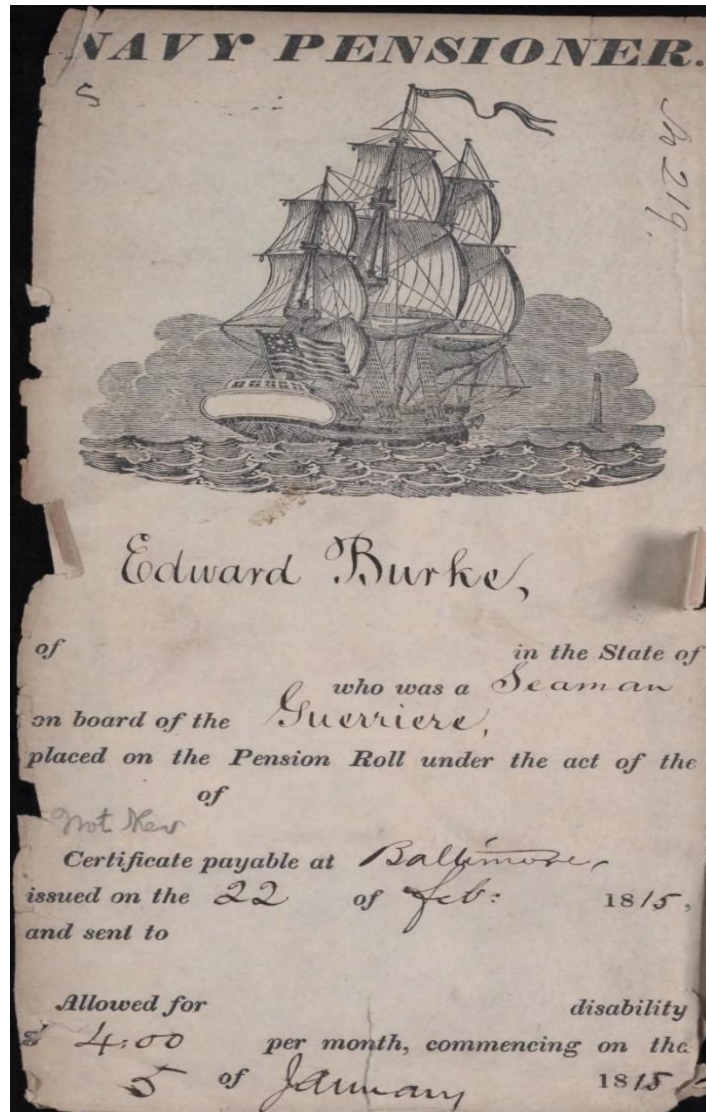 NAVY PENSIONER.
5
No 219.
Edward Burke,
of in the State of
who was a Seaman
on board of the Guerriere,
placed on the Pension Roll under the act of the
of
Not Rev
Certificate payable at Baltimore,
issued on the 22 of feb: 1815,
and sent to
Allowed for disability
$ 4.00 per month, commencing on the
5 of January 1815